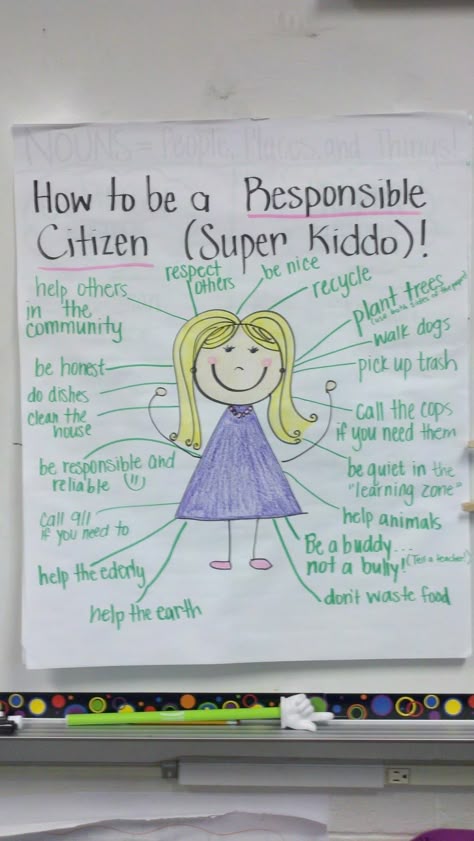 NOUNS = People, Places, and Things!
How to be a Responsible
Citizen (Super Kiddo)!
respect
others
be nice
recycle
help others
in the
community
plant trees
(use both sides of the paper)
walk dogs
be honest
pick up trash
do dishes
clean the
house
call the cops
if you need them
be responsible and
reliable
be quiet in the
"learning zone"
call 911
if you need to
help animals
help the ederly
Be a buddy...
not a bully! (Tell a teacher!)
help the earth
don't waste food